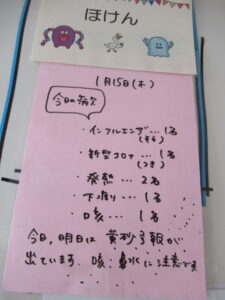 ほけん
1月15日(木)
今日の病欠
・インフルエンザ…1名
(そら)
・新型コロナ…1名
(つき)
・発熱…2名
・下痢り…1名
・口咳…1名
今日,明日は黄砂予報が
出ています.咳.鼻水に注意です